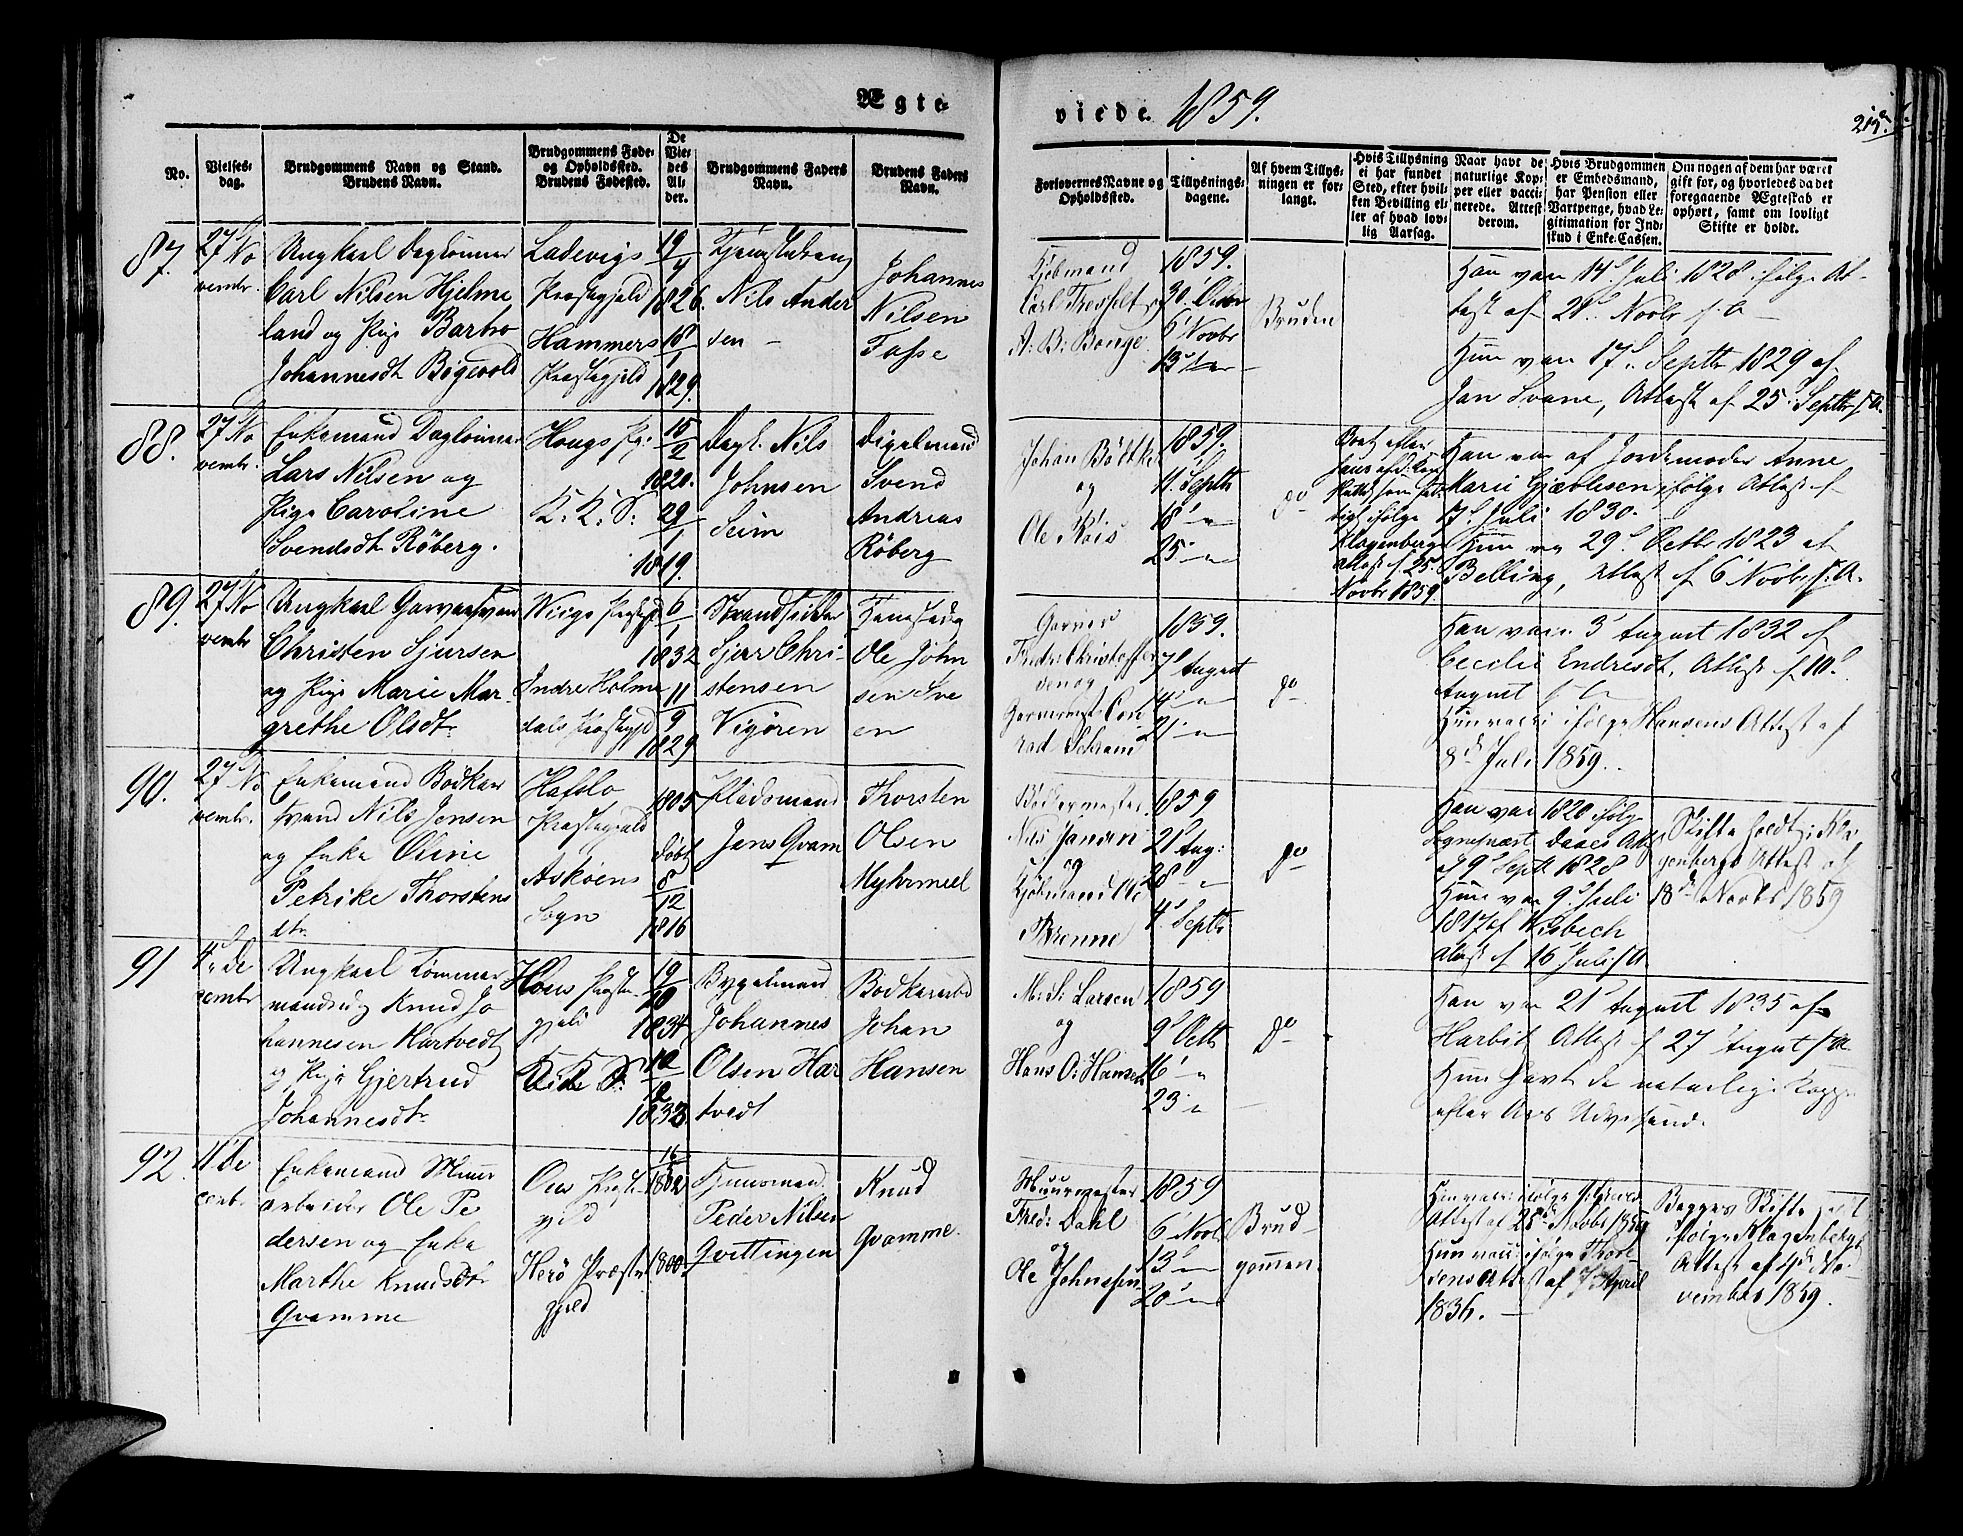 Ægte-
viede 1859.
No.
Vielses-
dag.
Brudgommens Navn og Stand.
Brudens Navn.
Brudgommens Føde-
og Opholdssted.
Brudens Fødested.
De
Vie-
des
Al-
der.
Brudgommens Faders
Navn.
Brudens Faders
Navn.
Forlovernes Navne og
Opholdssted.
Tillysnings-
dagene.
Af hvem Tillys-
ningen er for-
langt.
Hvis Tillysning
ei har fundet
Sted, efter hvil-
ken Bevilling el-
ler af hvad lov-
lig Aarsag.
Naar havt de
naturlige Kop-
per eller vacci-
nerede. Attest
derom.
Hvis Brudgommen
er Embedsmand,
har Pension eller
Vartpenge, hvad Le-
gitimation for Ind-
skud i Enke-Cassen.
Om nogen af dem har været
gift før, og hvorledes da det
foregaaende Ægteskab er
ophørt, samt om lovligt
Skifte er holdt.
87.
27 No
vembr.
Ungkarl Dagleiner
Carl Nilsen Hjelme
land og Pige Barbro
Johannesdt Bøgevold
Ladevigs
Præstegjeld
Hammers
Præstegjeld
19/4
1826.
18/1
1829.
Nils Ander
sen
Johannes
Nilsen
Fosse
Kjøbmand
1859.
30 Octbr
6 Novbr
13
Bruden
Han vac 14d Juli 1828 ifølge At-
test af 21d Novbr
Hun vac 17d Septbr 1829 af
Jan Svane, Attest af 25 Septbr f. A.
88.
27 No
vembr.
Enkemand Dagleiner
Lars Nilsen og
Pige Caroline
Svendsdt Røberg.
Hougs Pg:
K: K: S:
15/2
1820.
29/1
1819.
Dagl. Nils
Johnsen
Seim
Svend
Andreas
Røberg
Johan Böttker
og
Ole
1859.
11 Septbr
18 "
25 "
do
Klagenbergs
Attest af 25
Novbr 1859.
Han vac af Jordemoder Anne
Marie Gjæblesen ifølge Attest af
17d Juli 1830.
Hun vac 29d Octbr 1823 af
Belling, Attest af 6 Novbr f. A.
89.
27 No
vembr
Ungkarl Garversvend
Christen Sjursen
og Pige Marie Mar-
grethe Olsdt
Præstegjld
Indre Holme
dals Præstgjld
6/1
1832
11/9
1829
Strandsidder
Sjur Chri-
stensen
Vigøren
Ole John
sen Sve
en
Garver
Fredr: Christoffer
sen og
Garvermest: Con
rad Schram
1859.
7d August
14 "
21 "
do
Han vac: 3 August 1832 af
Cecilie Endresdt, Attest af 10d
August
Hun vac: ifølge Hansens Attest af
8d Juli 1859.
90.
27 No
vembr.
Enkemand Bødker
svend Nils Jensen
og Enke Oline
Petrike Thorstens
dtr.
Hafslo
Præstegjeld
Askøens
Sogn
1805
døbt
8/12
1816
Pladsmand
Jens Qvam
Thorsten
Olsen
Myhrmeel
Bødkermester
Nils Jansen
og
Kjøbmand
Brenne
1859
21 Aug:
28 "
4 Septbr
do
Han vac 1820 ifølge
Sognepræst Daaes Att
af 9d Septbr 1828
Hun vac 9d Juli
1817 af Wisbech
Attest af 16 Juli f A.
Skifte holdt, Kla
genbergs Attest af
18d Novbr 1859
91
4d De
cembr
Ungkarl Tømmer
mandsv Knud Jo
hannesen Hartvedt
og Pige Gjertrud
Johannesdt
Hous Præste
gjeld
K K S:
19/10
1834
12/12
1833
Bygselmand
Johannes
Olsen Har
tvedt
Bødkerarbd
Johan
Hansen
M: S: Larsen
og
Hans O: Hansen
1859
9d Octbr
16 "
23 "
do
Han vac 21d August 1835 af
Harbitz Attest af 27 August f A.
Hun havt de naturlige Kopper
efter Ars Udvisende.
92.
4 De
cembr.
Enkemand Muur
arbeider Ole Pe
dersen og Enke
Marthe Knudsdtr
Qvamme
Ous Præste
gjeld
Herø Præste
gjeld
16
1802
1800
Huusmand
Peder Nilsen
Qvittingen
Knud
Qvamme.
Muurmester
Fred: Dahl
og
Ole Johnssen
1859
6 Novbr
13 "
20 "
Brud-
gommen
Attest af 25d Novbr 1859
Hun vac: ifølge Thore
sens Attest af 7 April
1836.
Begges Skifte holdt
ifølge Klagenbergs
Attest af 4d No-
vember 1859.